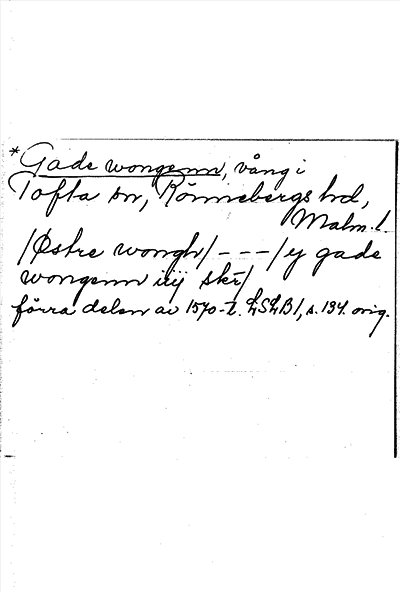 *Gade wongenn, vång i
Tofta sn, Rönnebergs hd,
Malm. l.
/Østre wongh/ - - - /y gade
wongenn iiij skr/
förra delen av 1570-t. LSLB1, s. 134. orig.